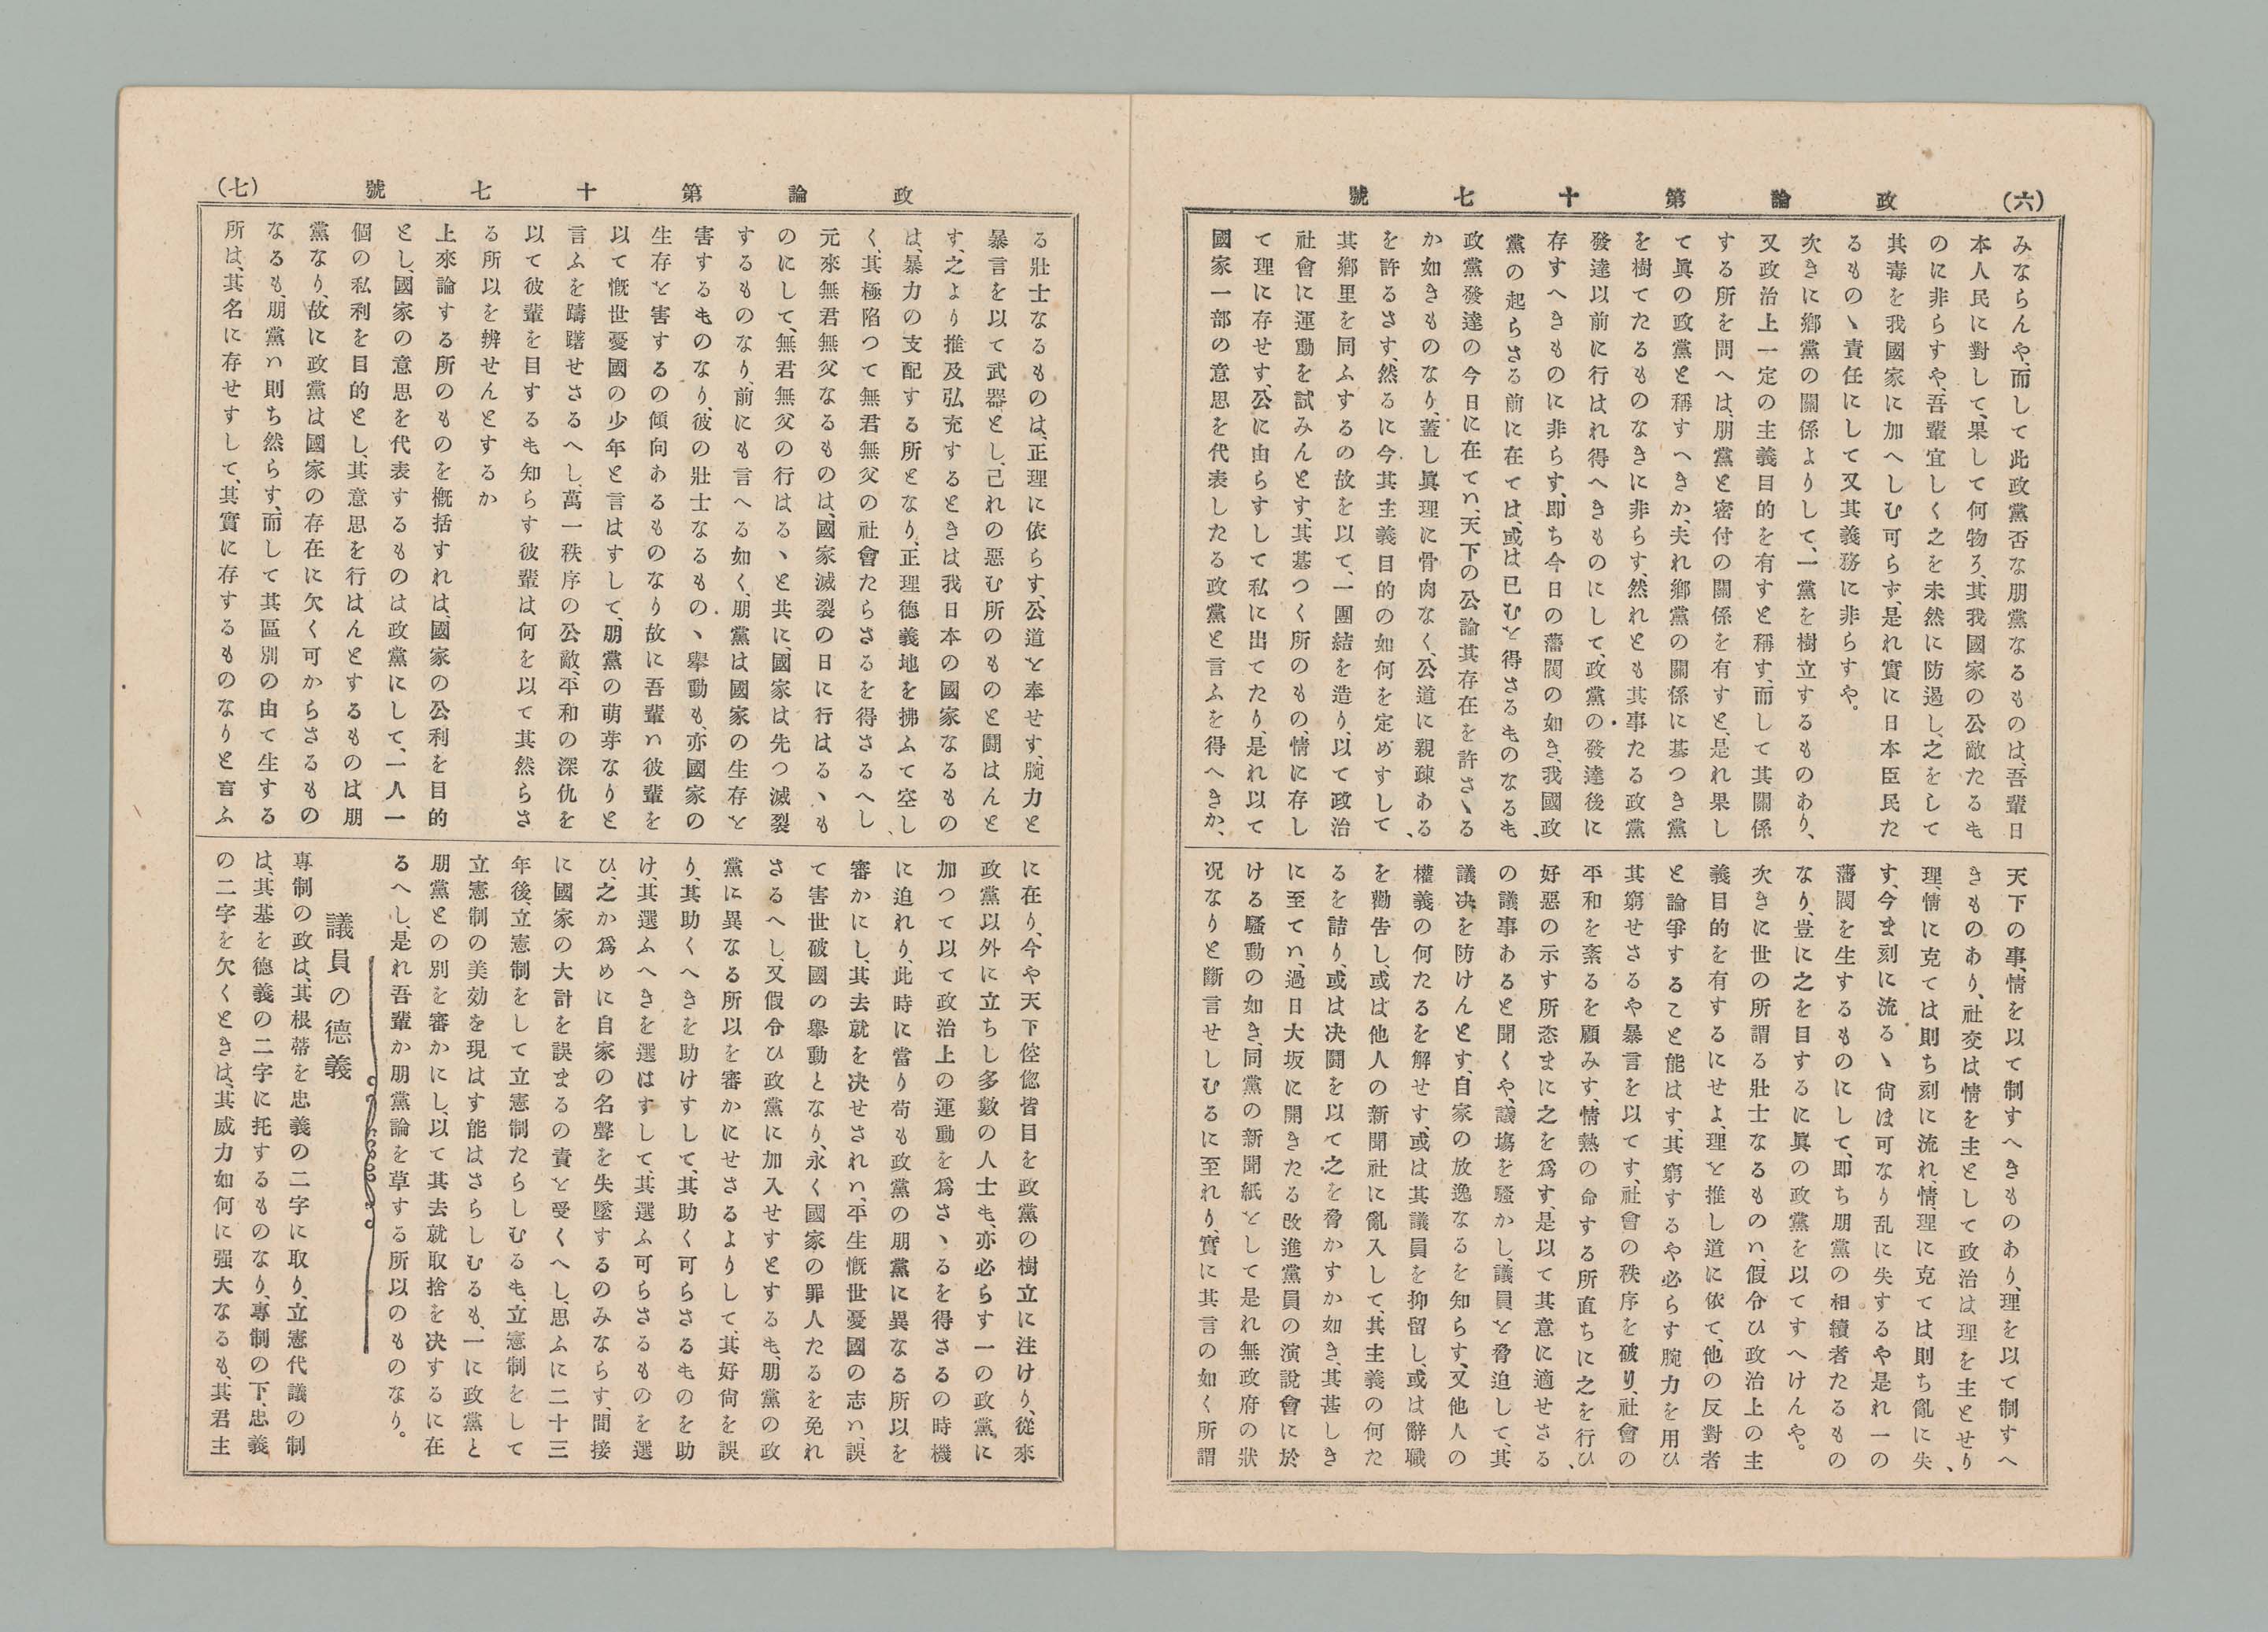 (六)
政論第十七號
みならんや、而して此政黨否な朋黨なるものは、吾輩日
本人民に對して、果して何物ろ、其我國家の公敵たるも
のに非らすや、吾輩宜しく之を未然に防遏し、之をして
其毒を我國家に加へしむ可らす、是れ實に日本臣民た
るものゝ責任にして又其義務に非らすや。
次きに鄕黨の關係よりして、一黨を樹立するものあり、
又政治上一定の主義目的を有すと稱す、而して其關係
する所を問へは、朋黨と密付の關係を有すと、是れ果し
て眞の政黨と稱すへきか、夫れ鄕黨の關係に基つき黨
を樹てたるものなきに非らす、然れとも其事たる政黨
發達以前に行はれ得へきものにして、政黨の發達後に
存すへきものに非らす、即ち今日の藩閥の如き、我國政
黨の起らさる前に在ては、或は已むを得さるものなるも、
政黨發達の今日に在てハ、天下の公論其存在を許さゝる
か如きものなり、蓋し眞理に骨肉なく、公道に親疎ある
を許るさす、然るに今其主義目的の如何を定めすして、
其鄕里を同ふするの故を以て、一團結を造り、以て政治
社會に運動を試みんとす、其基つく所のもの、情に存し
て理に存せす、公に由らすして私に出てたり、是れ以て
國家一部の意思を代表したる政黨と言ふを得へきか、
天下の事、情を以て制すへきものあり、理を以て制すへ
きものあり、社交は情を主として政治は理を主とせり、
理、情に克ては則ち刻に流れ、情、理に克ては則ち亂に失
す、今ま刻に流るゝ尙は可なり乱に失するや是れ一の
藩閥を生するものにして、即ち朋黨の相續者たるもの
なり、豈に之を目するに眞の政黨を以てすへけんや。
次きに世の所謂る壯士なるものハ、假令ひ政治上の主
義目的を有するにせよ、理を推し道に依て、他の反對者
と論爭すること能はす、其窮するや必らす腕力を用ひ
其窮せさるや暴言を以てす、社會の秩序を破り、社會の
平和を紊るを顧みす、情熱の命する所直ちに之を行ひ、
好惡の示す所恣まに之を爲す、是以て其意に適せさる
の議事あると聞くや、議塲を騷かし、議員を脅迫して、其
議决を防けんとす、自家の放逸なるを知らす、又他人の
權義の何たるを解せす、或は其議員を抑留し、或は辭職
を勸告し、或は他人の新聞社に亂入して、其主義の何た
るを詰り、或は決鬪を以て之を脅かすか如き、其甚しき
に至てハ、過日大坂に開きたる改進黨員の演說會に於
ける騷動の如き、同黨の新聞紙をして是れ無政府の狀
况なりと斷言せしむるに至れり、實に其言の如く所謂
(七)
政論第十七號
る壯士なるものは、正理に依らす、公道を奉せす、腕力と
暴言を以て武器とし、己れの惡む所のものと鬪はんと
す、之より推及弘充するときは我日本の國家なるもの
は、暴力の支配する所となり、正理德義地を拂ふて空し
く、其極陷つて無君無父の社會たらさるを得さるへし、
元來無君無父なるものは、國家滅裂の日に行はるゝも
のにして、無君無父の行はるゝと共に、國家は先つ滅裂
するものなり、前にも言へる如く、朋黨は國家の生存を
害するものなり、彼の壯士なるものゝ擧動も、亦國家の
生存を害するの傾向あるものなり故に吾輩ハ彼輩を
以て慨世憂國の少年と言はすして、朋黨の萌芽なりと
言ふを躊躇せさるへし、萬一秩序の公敵、平和の深仇を
以て彼輩を目するも知らす彼輩は何を以て其然らさ
る所以を辨せんとするか
上來論する所のものを槪括すれは、國家の公利を目的
とし、國家の意思を代表するものは政黨にして、一人一
個の私利を目的とし、其意思を行はんとするものは朋
黨なり、故に政黨は國家の存在に欠く可からさるもの
なるも、朋黨ハ則ち然らす、而して其區別の由て生する
所は、其名に存せすして、其實に存するものなりと言ふ
に在り、今や天下倥偬皆目を政黨の樹立に注けり、從來
政黨以外に立ちし多數の人士も、亦必らす一の政黨に
加つて以て政治上の運動を爲さゝるを得さるの時機
に迫れり、此時に當り苟も政黨の朋黨に異なる所以を
審かにし、其去就を决せされハ、平生慨世憂國の志ハ、誤
て害世破國の擧動となり、永く國家の罪人たるを免れ
さるへし、又假令ひ政黨に加入せすとするも、朋黨の政
黨に異なる所以を審かにせさるよりして、其好尙を誤
り、其助くへきを助けすして、其助く可らさるものを助
け、其選ふへきを選はすして、其選ふ可らさるものを選
ひ、之か爲めに自家の名聲を失墜するのみならす、間接
に國家の大計を誤まるの責を受くへし、思ふに二十三
年後、立憲制をして立憲制たらしむるも、立憲制をして
立憲制の美効を現はす能はさらしむるも、一に政黨と
朋黨との別を審かにし、以て其去就取捨を决するに在
るへし、是れ吾輩か朋黨論を草する所以のものなり。
議員の德義
專制の政は、其根蔕を忠義の二字に取り、立憲代議の制
は、其基を德義の二字に托するものなり、專制の下、忠義
の二字を欠くときは、其威力如何に强大なるも、其君主